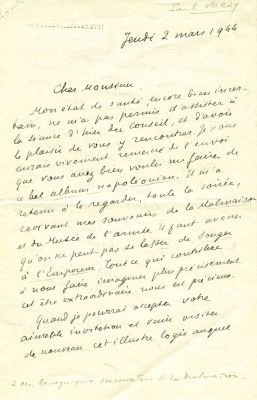 Paul Valéry
Jeudi 2 mars 1944
Cher Monsieur,
Mon état de santé, encore bien incer-
tain, ne m'a pas permis d'assister à
la séance d'hier du Conseil, et d'avoir
le plaisir de vous y rencontrer. Je vous
aurais vivement remercié de l'envoi
que vous avez bien voulu me faire, de
ce bel album napoléonien. Il m'a
retenu à le regarder, toute la soirée,
ravivant mes souvenirs de la Malmaison
et du Musée de l'armée. Il faut avouer
qu'on ne peut pas se lasser de songer
à l'Empereur. Tout ce qui contribue
à nous faire imaginer plus précisément
cet être extraordinaire nous est précieux.
Quand je pourrai accepter votre
aimable invitation et venir visiter
de nouveau cet illustre logis auquel
à Mr. Bourguignon, conservateur de la Malmaison